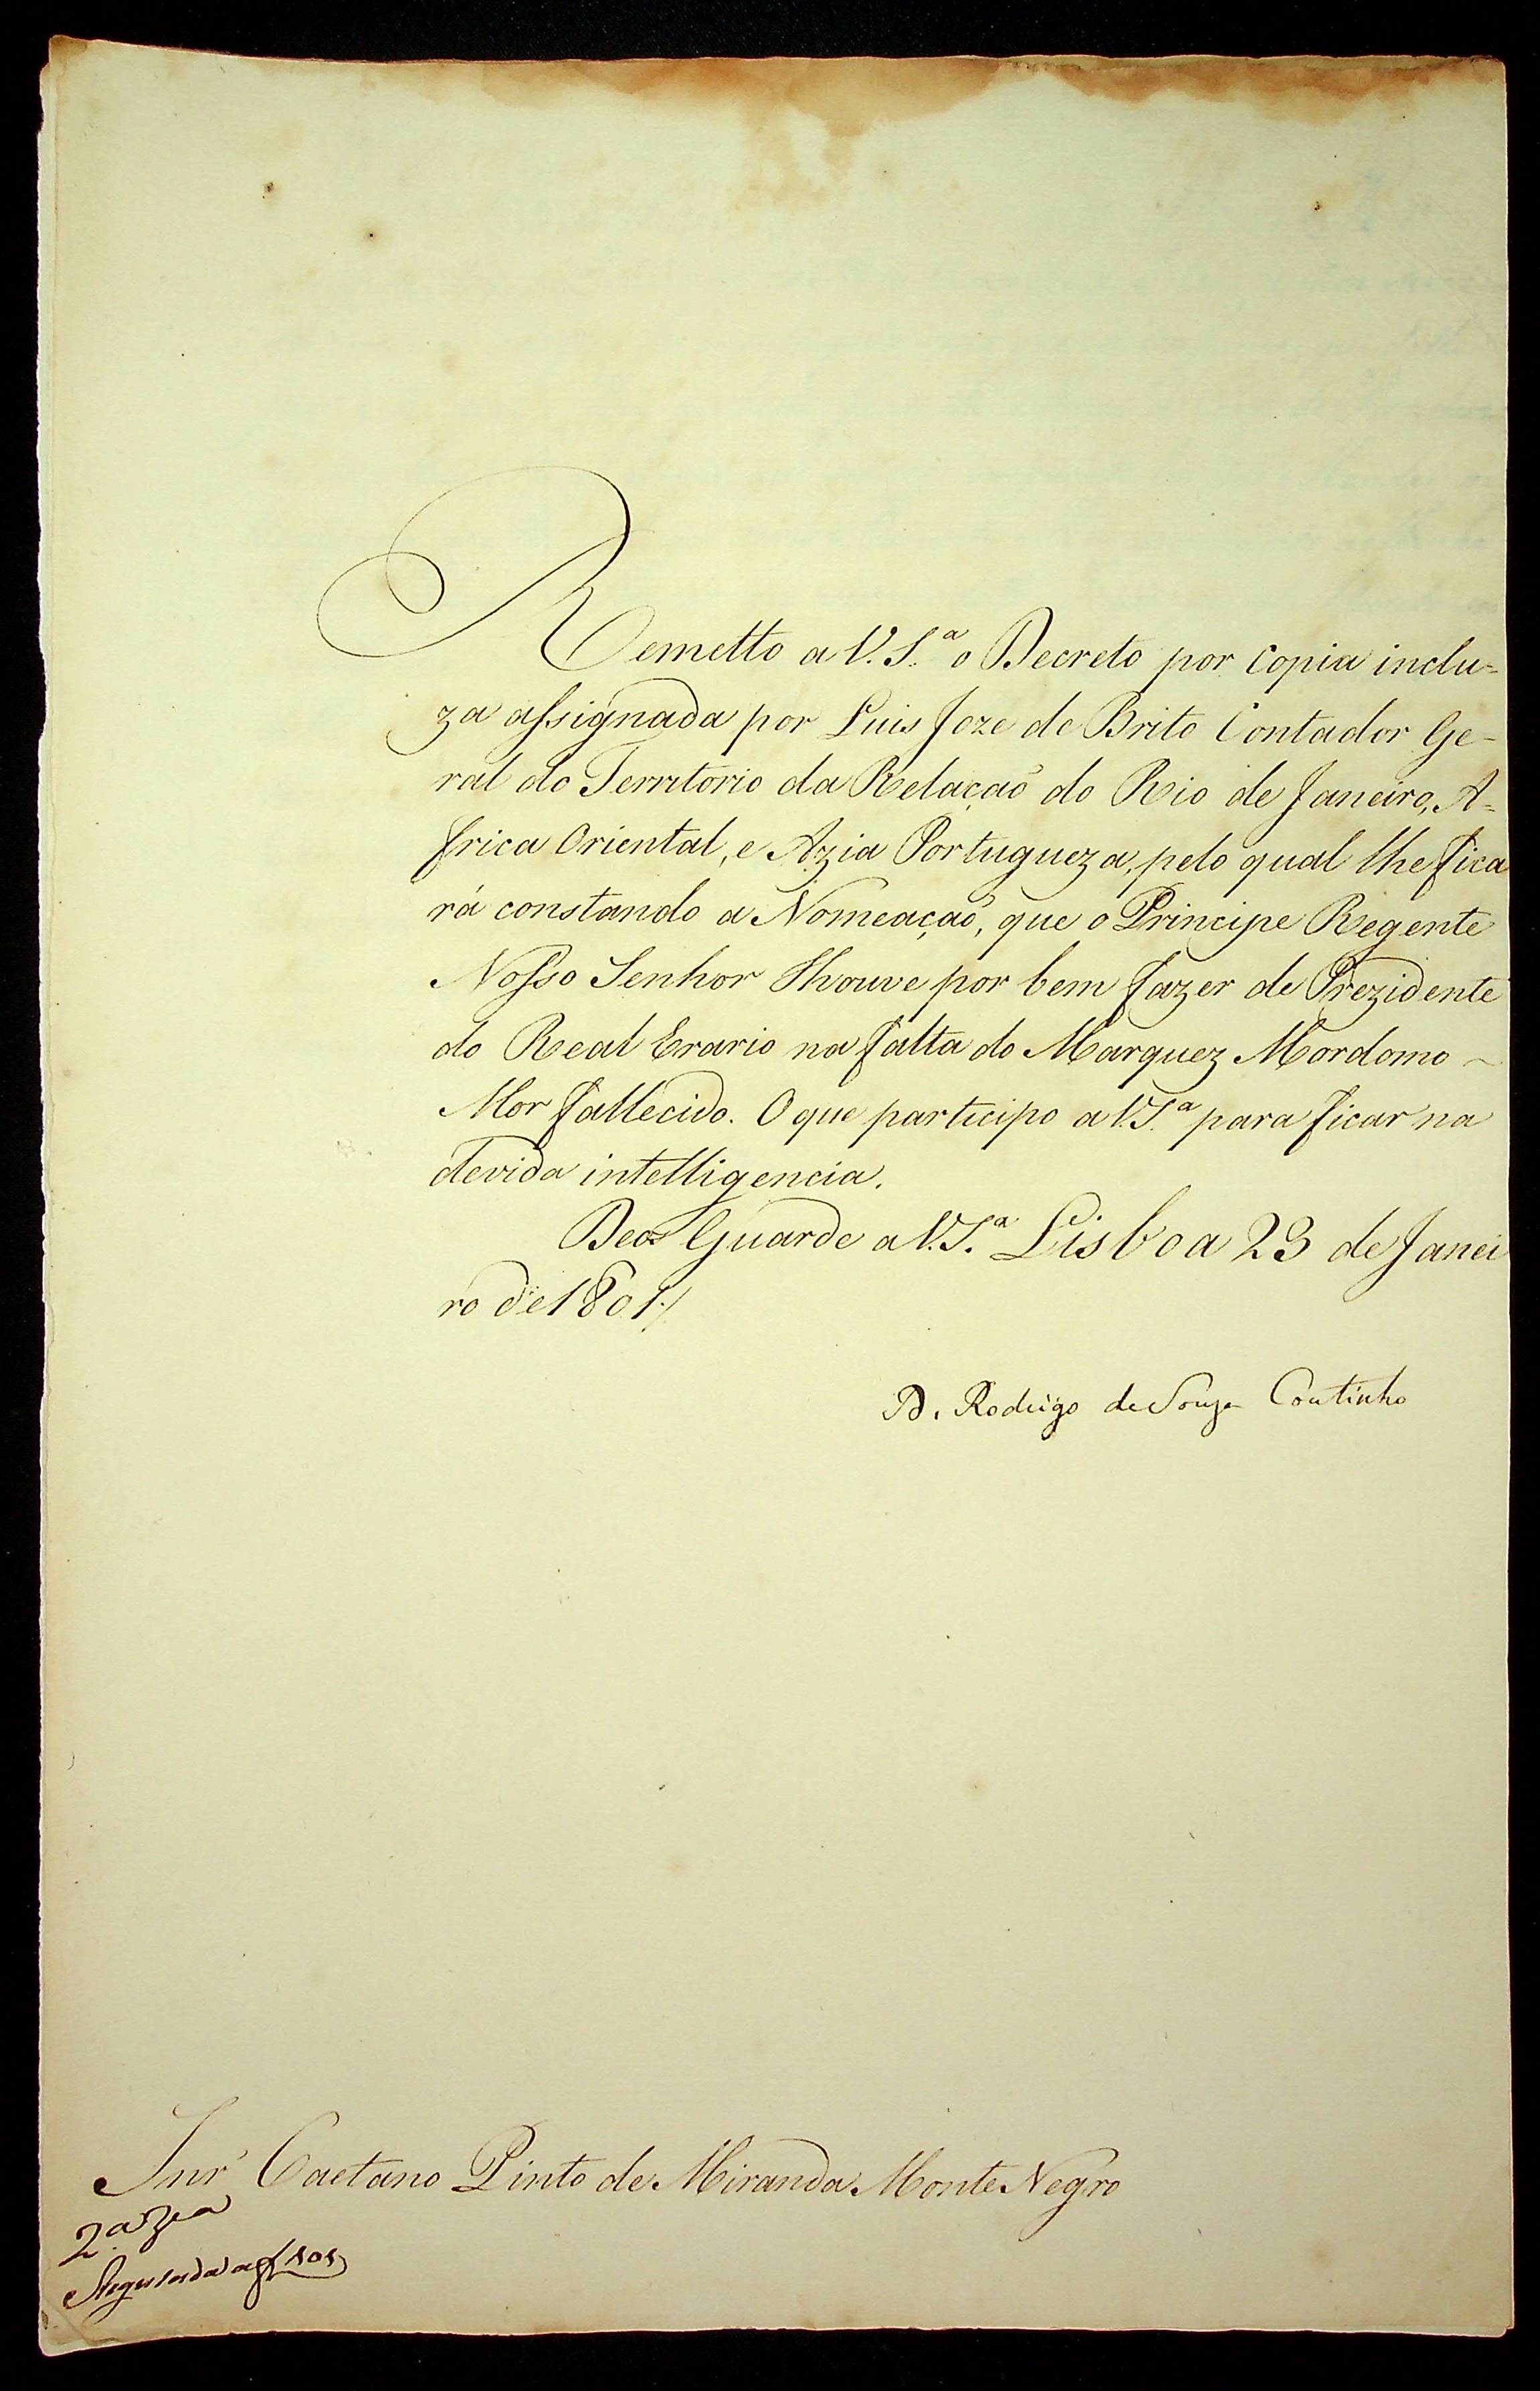 Remetto a V. S.ª o Decreto por Copia inclu-
za assignada por Luis Joze de Brito Contador Ge-
ral do Territorio da Relaçaõ do Rio de Janeiro, A-
frica Oriental, e Azia Portugueza, pelo qual lhe fica
rá constando a Nomeaçaõ, que o Principe Regente
Nosso Senhor Houve por bem fazer de Prezidente
do Real Erario na falta do Marquez Mordomo
Mor fallecido. O que participo a V. S.ª para ficar na
devida intelligencia.
Deos Guarde a V. S.ª Lisboa 23 de Janei
ro de 1801.//
D. Rodrigo de Souza Coutinho
Snr' Caetano Pinto de Miranda Monte Negro
2.ª via